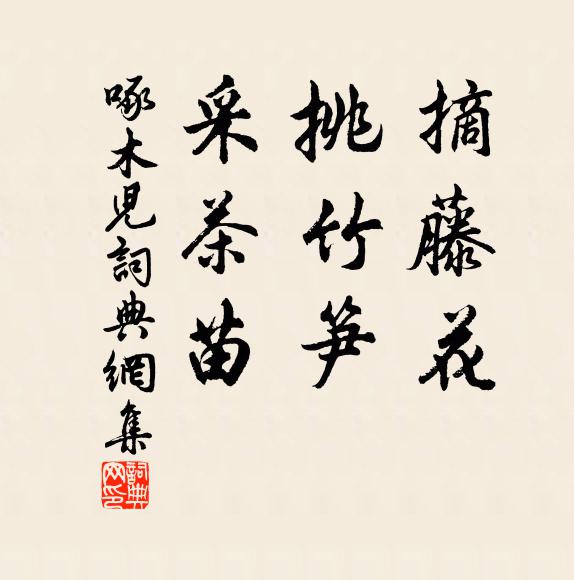 摘藤花
挑竹笋
采茶苗
啄木児詞典網集
詞典
网印